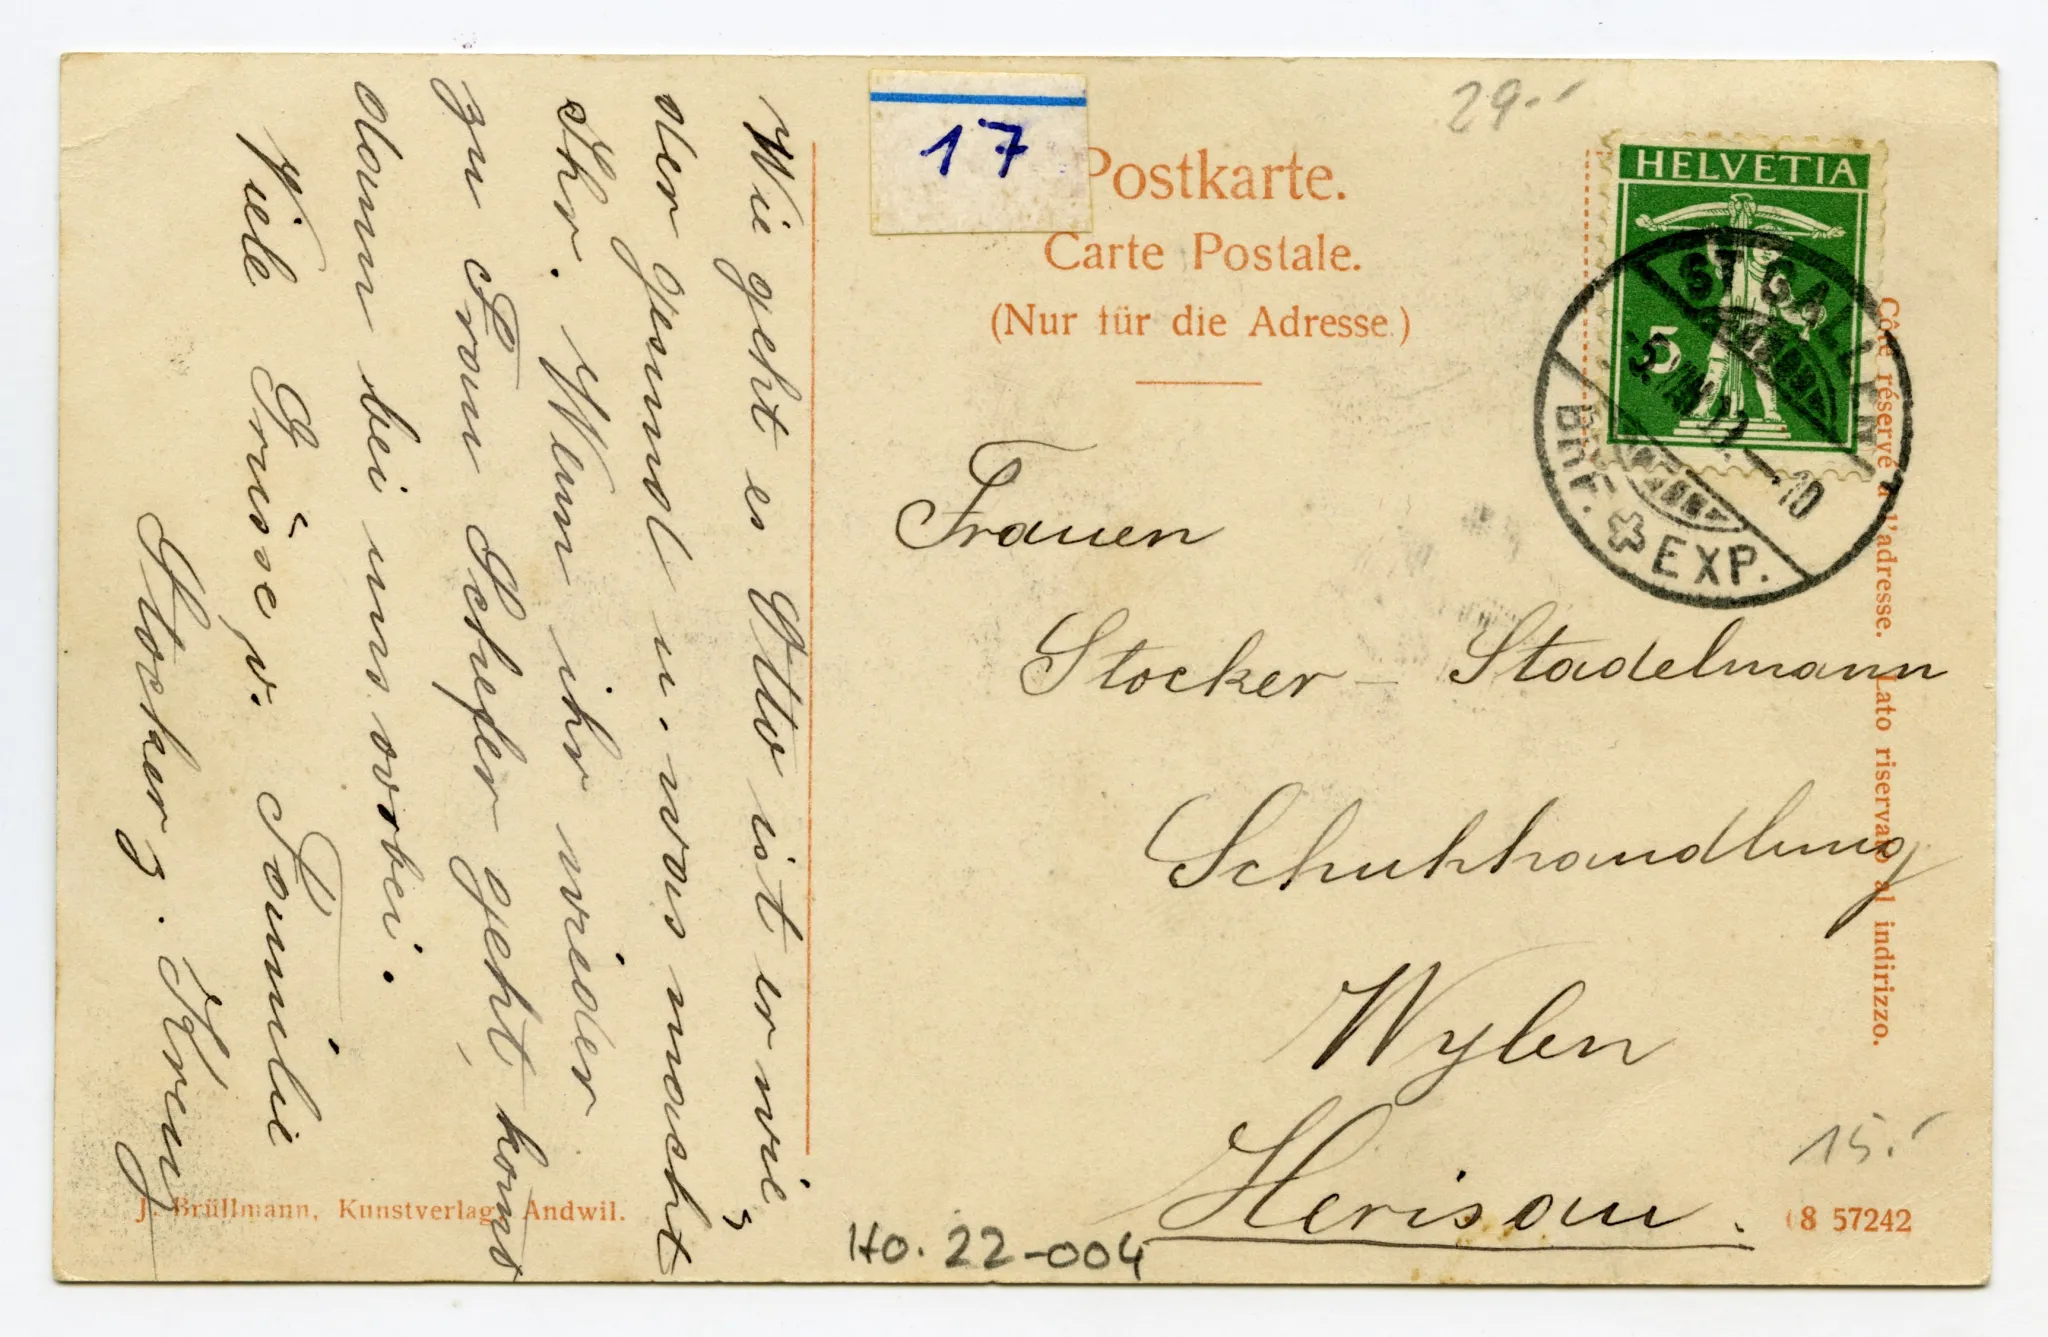 Wie geht es Otto ist er wie,
der gesund u. was macht
Ihr. Wenn ihr wieder
zu Frau Schefer geht, komt
dann bei uns vorbei.
Viele Grüsse v. Familie
Stocker z. Kreuz
17
29.-
Postkarte.
Carte Postale.
(Nur für die Adresse.)
HELVETIA
5
ST. GALLEN
10
BRF. EXP.
Côté réservé à l'adresse. Lato riservato al indirizzo.
Frauen
Stocker - Stadelmann
Schuhhandlung
Wylen
Herisau.
15.-
J. Brüllmann, Kunstverlag, Andwil.
Ho. 22-004
08 57242